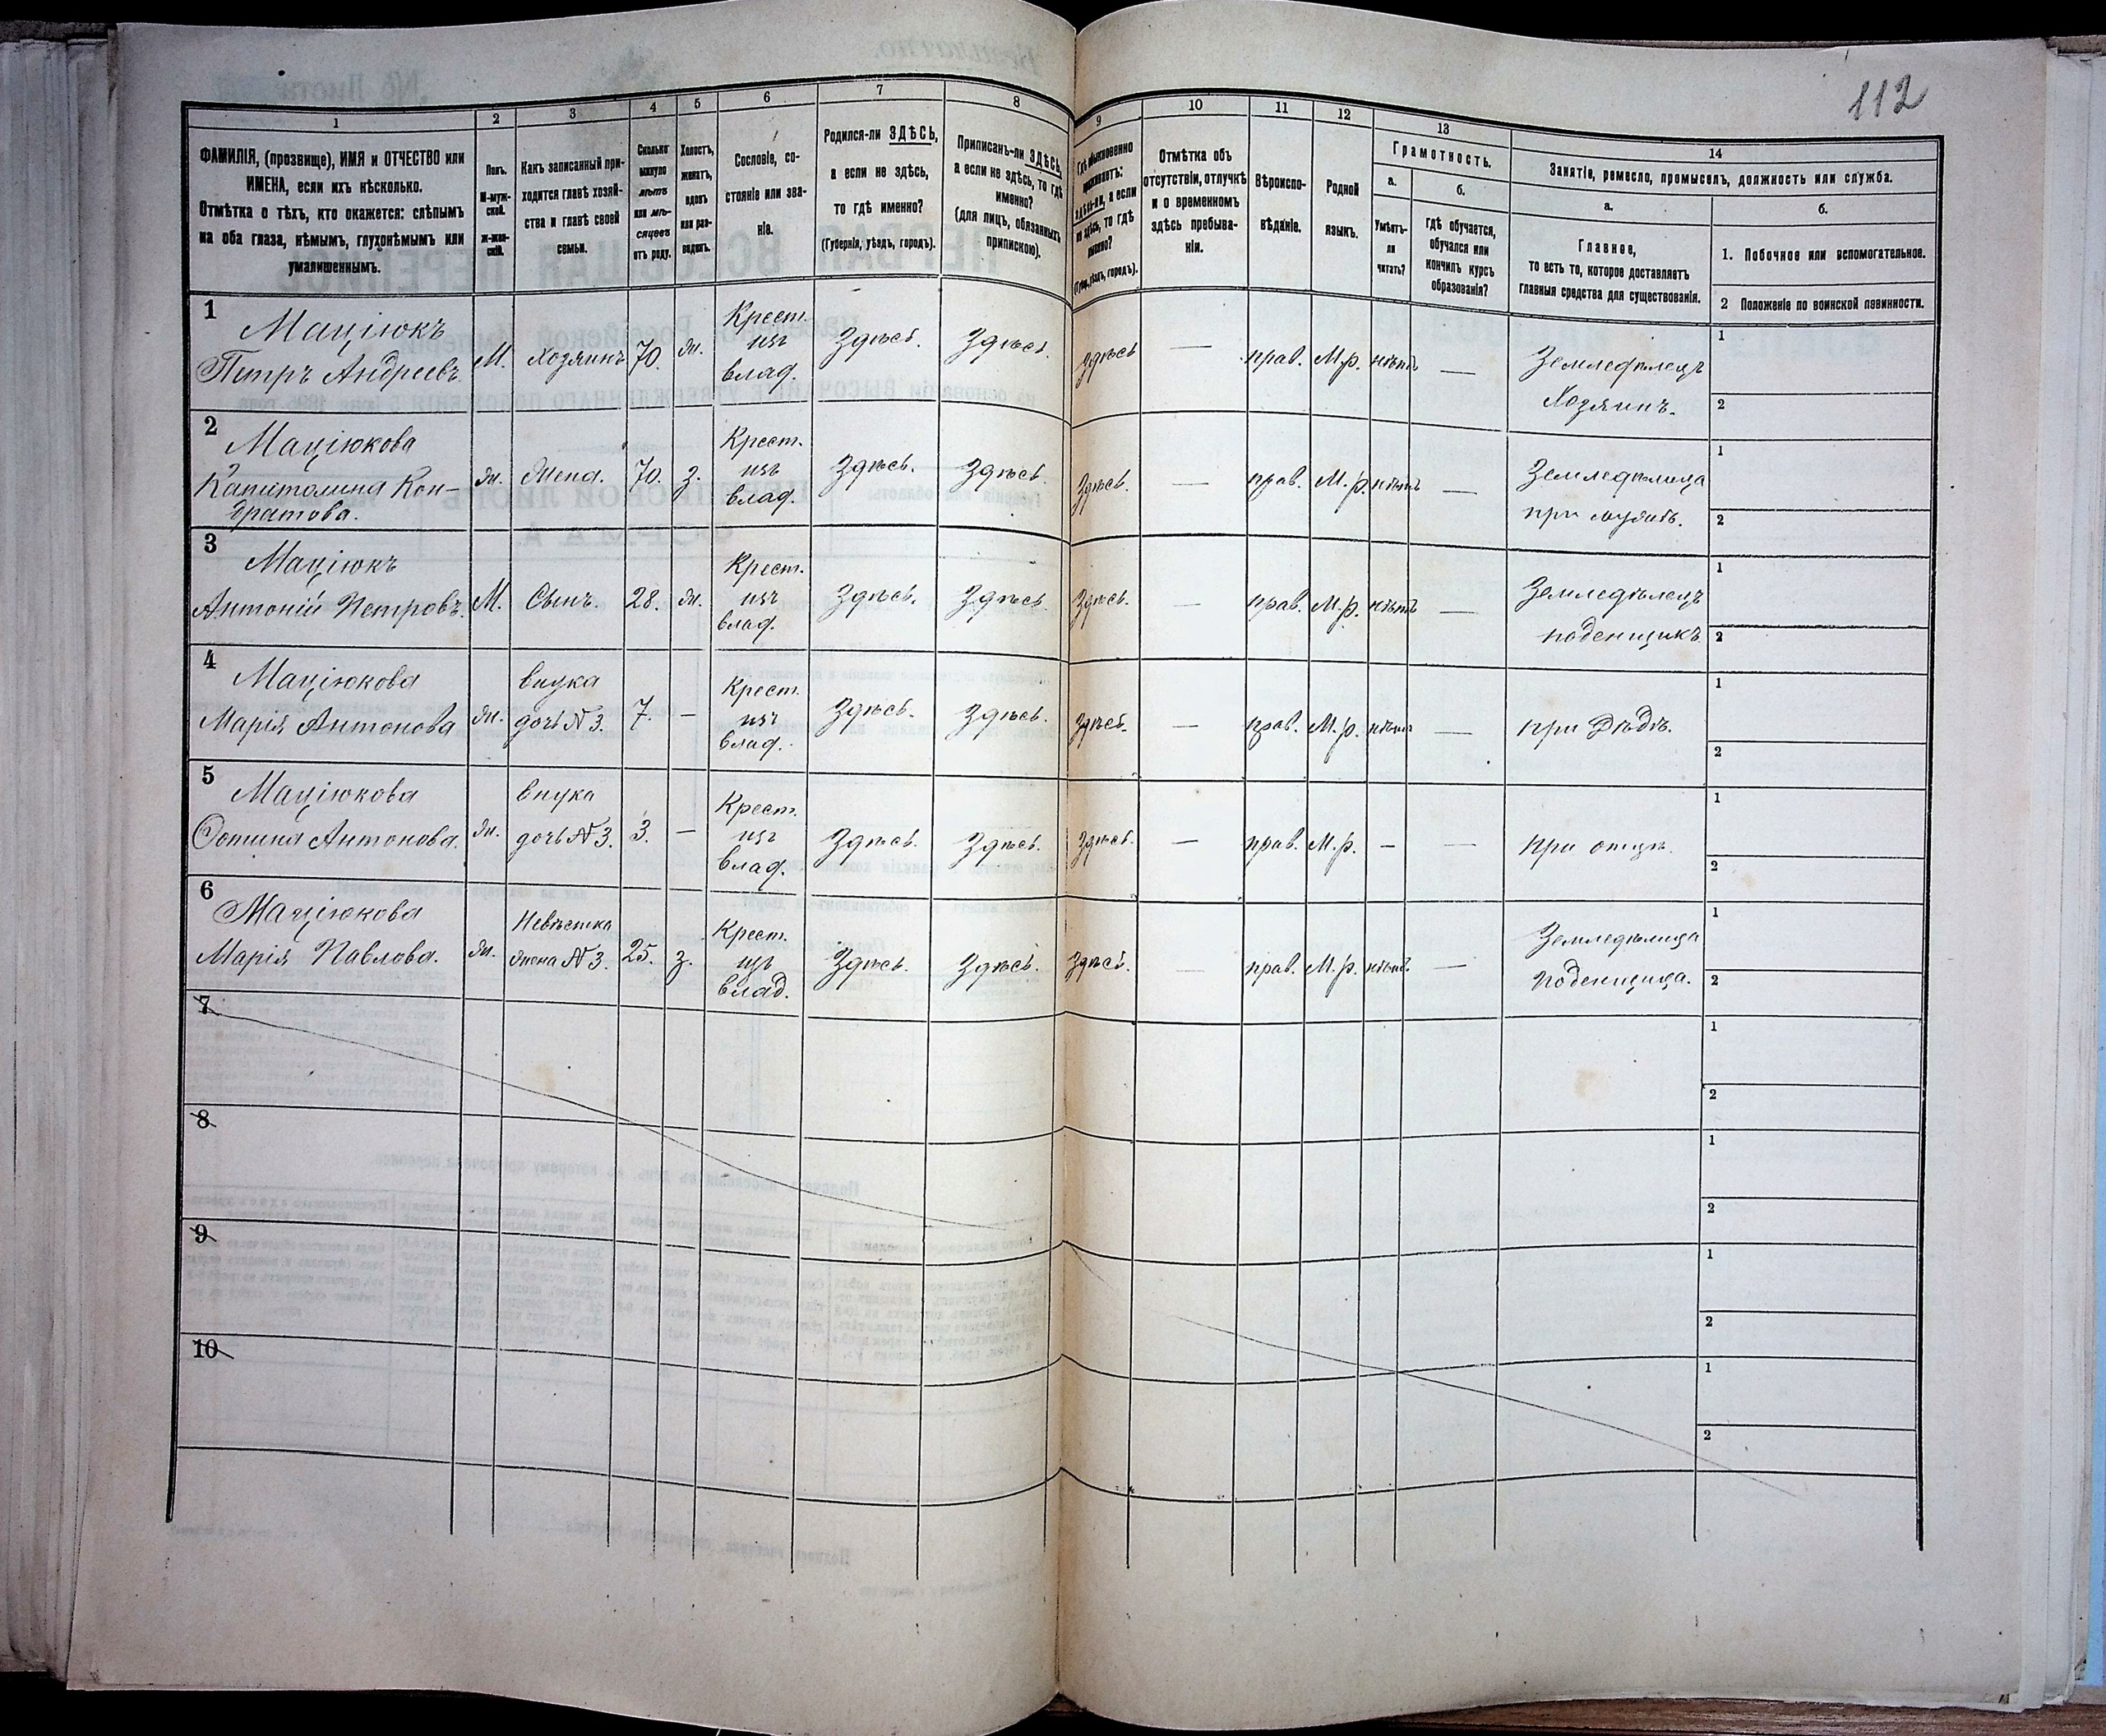 112
1
2
3
4
5
6
7
8
9
10
11
12
13
14
ФАМИЛІЯ, (прозвище), ИМЯ и ОТЧЕСТВО или
ИМЕНА, если ихъ нѣсколько.
Отмѣтка о тѣхъ, кто окажется: слѣпымъ
на оба глаза, нѣмымъ, глухонѣмымъ или
умалишеннымъ.
Полъ.
М-муж-
ской.
ж-жен-
скій.
Какъ записанный при-
ходится главѣ хозяй-
ства и главѣ своей
семьи.
Сколько
минуло
лѣтъ
или мѣ-
сяцевъ
отъ роду.
Холостъ,
женатъ,
вдовъ
или раз-
веденъ.
Сословіе, со-
стояніе или зва-
ніе.
Родился-ли ЗДѢСЬ,
а если не здѣсь,
то гдѣ именно?
(Губернія, уѣздъ, городъ).
Приписанъ-ли ЗДѢСЬ,
а если не здѣсь, то гдѣ
именно?
(для лицъ, обязанныхъ
припискою).
Гдѣ обыкновенно
проживаетъ:
здѣсь-ли, а если
не здѣсь, то гдѣ
именно?
(Губ., уѣздъ, городъ).
Отмѣтка объ
отсутствіи, отлучкѣ
и о временномъ
здѣсь пребыва-
ніи.
Вѣроиспо-
вѣданіе.
Родной
языкъ.
Грамотность.
а.
б.
Умѣетъ-
ли
читать?
гдѣ обучается,
обучался или
кончилъ курсъ
образованія?
Занятіе, ремесло, промыселъ, должность или служба.
а.
б.
Главное,
то есть то, которое доставляетъ
главныя средства для существованія.
1. Побочное или вспомогательное.
2 Положеніе по воинской повинности.
1
Маціюкъ
Петръ Андреевъ
М.
Хозяинъ
70.
ж.
Крест.
изъ
влад.
Здѣсь.
Здѣсь.
Здѣсь
—
прав.
М.р.
нѣтъ
—
Земледѣлецъ
Хозяинъ.
1
2
2
Маціюкова
Капитолина Кон-
дратова.
ж.
Жена.
70.
з.
Крест.
изъ
влад.
Здѣсь.
Здѣсь.
Здѣсь.
—
прав.
М.р.
нѣтъ
—
Земледѣлица
при мужѣ.
1
2
3
Маціюкъ
Антоній Петровъ.
М.
Сынъ.
28.
ж.
Крест.
изъ
влад.
Здѣсь.
Здѣсь
Здѣсь.
—
прав.
М.р.
нѣтъ
—
Земледѣлецъ
поденщикъ
1
2
4
Маціюкова
Марія Антонова
ж.
внука
дочь N 3.
7.
—
Крест.
изъ
влад.
Здѣсь.
Здѣсь.
Здѣсь.
—
прав.
М.р.
нѣтъ
—
при Дѣдѣ.
1
2
5
Маціюкова
Антонова.
ж.
внука
дочь N 3.
3.
—
Крест.
изъ
влад.
Здѣсь.
Здѣсь.
Здѣсь.
—
прав.
М.р.
—
—
при отцѣ.
1
2
6
Маціюкова
Марія Павлова.
ж.
Невѣстка
жена N 3.
25.
з.
Крест.
изъ
влад.
Здѣсь.
Здѣсь.
Здѣсь.
—
прав.
М.р.
нѣтъ
—
Земледѣлица
Поденщица.
1
2
7
1
2
8
1
2
9
1
2
10
1
2